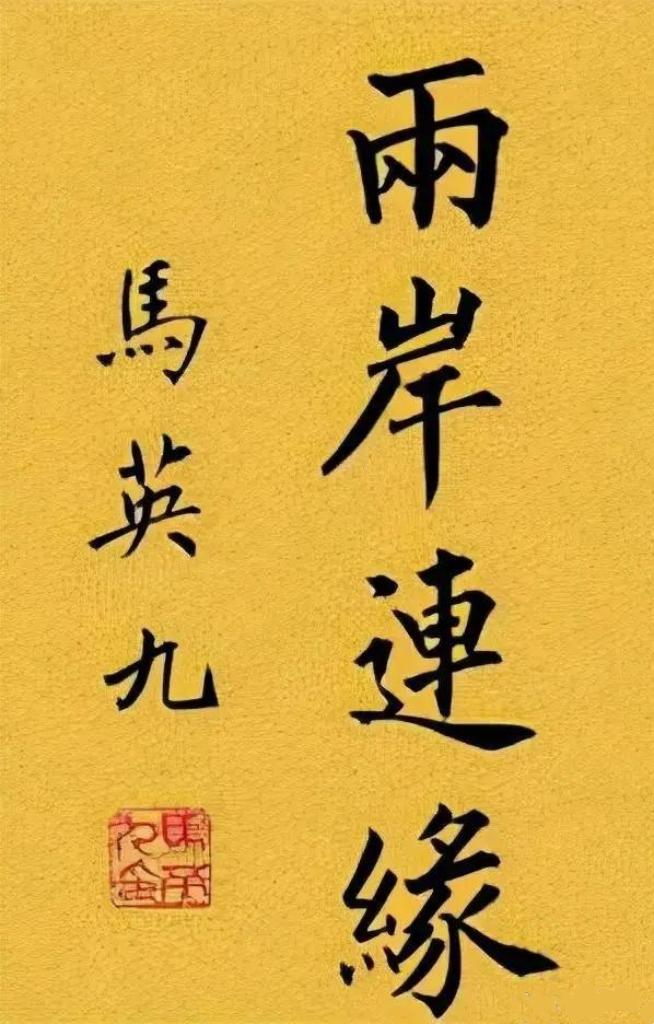 兩岸連緣
馬英九